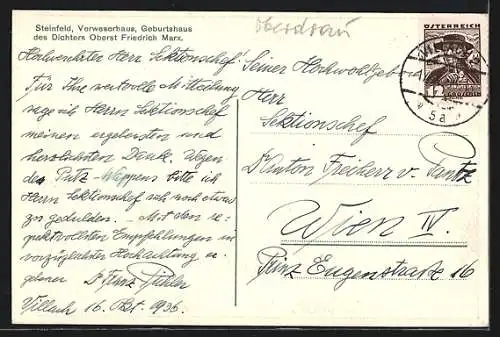 Steinfeld, Verweserhaus, Geburtshaus
des Dichters Oberst Friedrich Marx.
Oberdrau
Hochverehrter Herr Sektionschef!
Für Ihre wertvolle Mitteilung
sage ich Herrn Sektionschef
meinen ergebensten und
herzlichsten Dank. Wegen
des Putz-Wappens bitte ich
Herrn Sektionschef sich noch etwas
zu gedulden. - Mit den re-
spektvollsten Empfehlungen in
vorzüglichster Hochachtung er-
gebener Dr Franz Pichler
Villach 16. Okt. 1936.
ÖSTERREICH
12
VILLACH 2
5a
Seiner Hochwohlgeb.
Herr
Sektionschef
Dr Anton Freiherr v. Pantz
Wien IV.
Prinz Eugenstraße 16